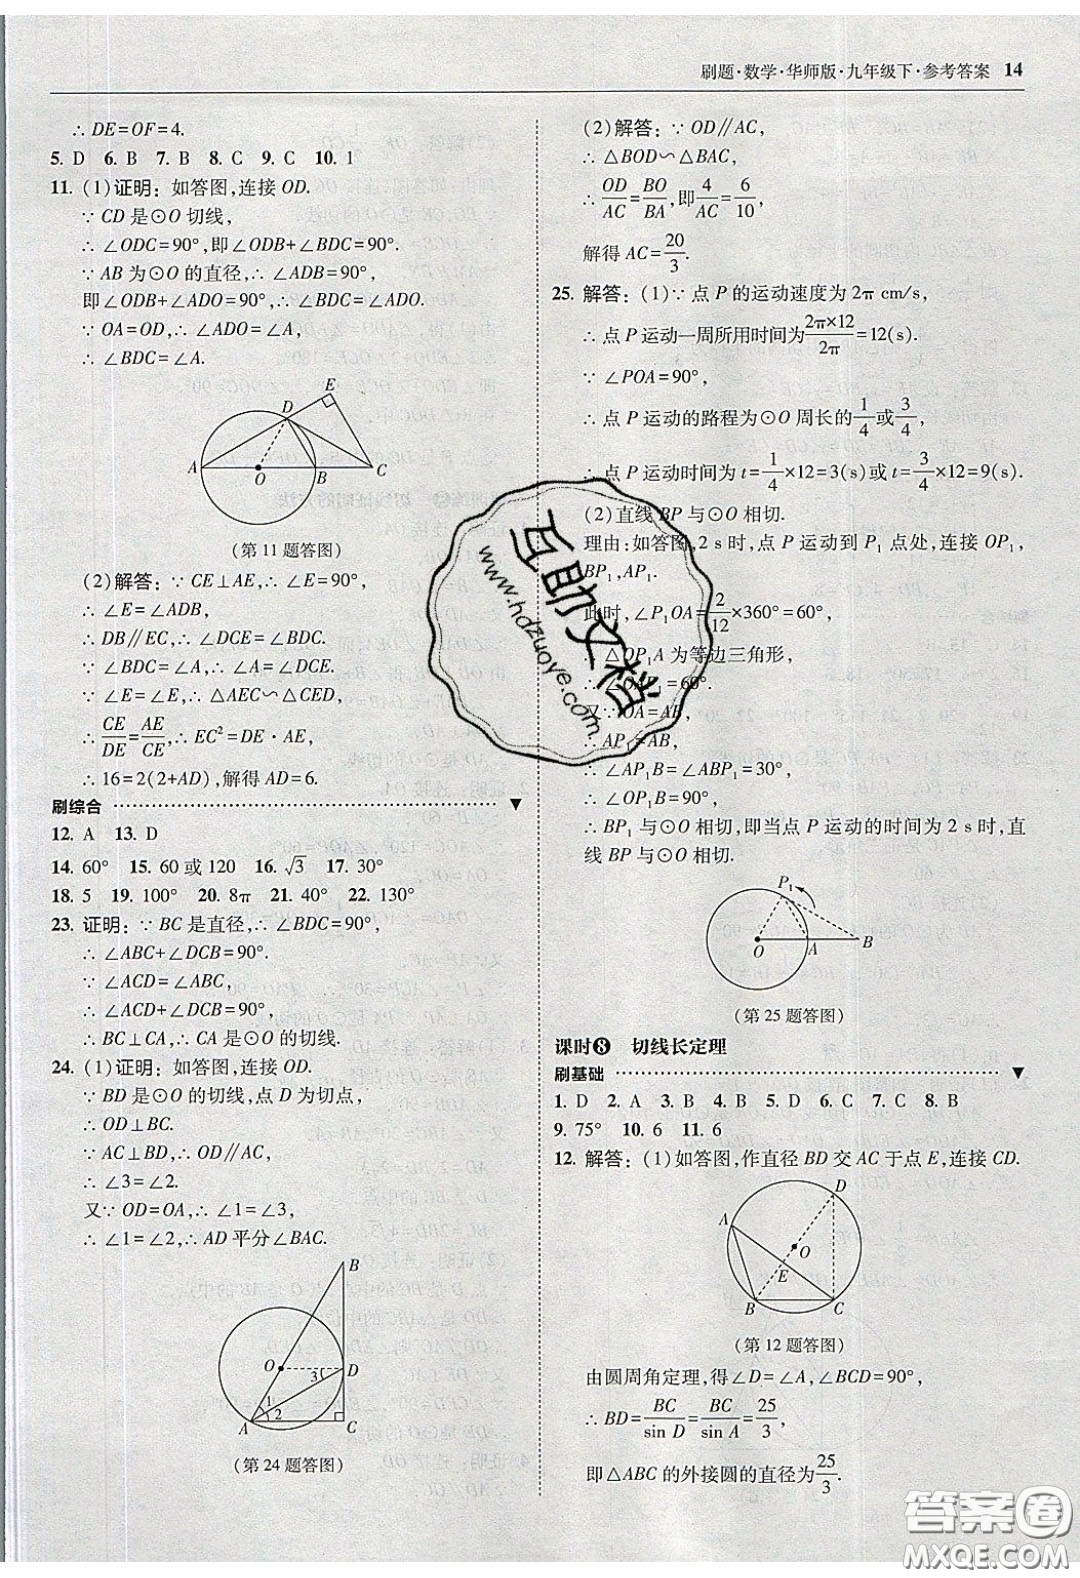 刷题·数学·华师版·九年级下·参考答案 14
∴ DE=OF=4.
5. D 6. B 7. B 8. C 9. C 10. 1
11. (1)证明：如答图,连接 OD.
∵ CD 是⊙O 切线,
∴ ∠ODC=90°,即∠ODB+∠BDC=90°.
∵ AB 为⊙O 的直径,∴ ∠ADB=90°,
即∠ODB+∠ADO=90°,∴ ∠BDC=∠ADO.
∵ OA=OD,∴ ∠ADO=∠A,
∴ ∠BDC=∠A.
E
D
A
O
B
C
(第 11 题答图)
(2)解答：∵ CE⊥AE,∴ ∠E=90°,
∴ ∠E=∠ADB=90°,
∴ DB∥EC,∴ ∠DCE=∠BDC.
∵ ∠BDC=∠A,∴ ∠A=∠DCE.
∵ ∠E=∠E,∴ △AEC∽△CED,
∴ CE/DE=AE/CE,∴ EC²=DE·AE,
∴ 16=2(2+AD),解得 AD=6.
刷综合
12. A 13. D
14. 60° 15. 60 或 120 16. √3 17. 30°
18. 5 19. 100° 20. 8π 21. 40° 22. 130°
23. 证明：∵ BC 是直径,∴ ∠BDC=90°,
∴ ∠ABC+∠DCB=90°.
∵ ∠ACD=∠ABC,
∴ ∠ACD+∠DCB=90°,
∴ BC⊥CA,∴ CA 是⊙O 的切线.
24. (1)证明：如答图,连接 OD.
∵ BD 是⊙O 的切线,点 D 为切点,
∴ OD⊥BC.
∵ AC⊥BD,∴ OD∥AC,
∴ ∠3=∠2.
又∵ OD=OA,∴ ∠1=∠3,
∴ ∠1=∠2,∴ AD 平分∠BAC.
B
O
D
3
1
2
A
C
(第 24 题答图)
(2)解答：∵ OD∥AC,
∴ △BOD∽△BAC,
∴ OD/AC=BO/BA,即4/AC=6/10,
解得 AC=20/3.
25. 解答：(1)∵ 点 P 的运动速度为 2π cm/s,
∴ 点 P 运动一周所用时间为2π×12/2π=12(s).
∵ ∠POA=90°,
∴ 点 P 运动的路程为⊙O 周长的1/4或3/4,
∴ 点 P 运动时间为 t=1/4×12=3(s)或 t=3/4×12=9(s).
(2)直线 BP 与⊙O 相切.
理由：如答图,2 s 时,点 P 运动到 P₁ 点处,连接 OP₁,
BP₁,AP₁.
此时,∠P₁OA=2/12×360°=60°,
∴ △OP₁A 为等边三角形,
∴ ∠OAP₁=60°.
又∵OA=AB,
∴ AP₁=AB,
∴ ∠AP₁B=∠ABP₁=30°,
∴ ∠OP₁B=90°,
∴ BP₁ 与⊙O 相切,即当点 P 运动的时间为 2 s 时,直
线 BP 与⊙O 相切.
P₁
O
A
B
(第 25 题答图)
课时❽ 切线长定理
刷基础
1. D 2. A 3. B 4. B 5. D 6. C 7. C 8. B
9. 75° 10. 6 11. 6
12. 解答：(1)如答图,作直径 BD 交 AC 于点 E,连接 CD.
D
A
O
E
B
C
(第 12 题答图)
由圆周角定理,得∠D=∠A,∠BCD=90°,
∴ BD=BC/sin D=BC/sin A=25/3,
即△ABC 的外接圆的直径为25/3.
互助文档
www.hdzuoye.com
答案圈
MXQE.COM